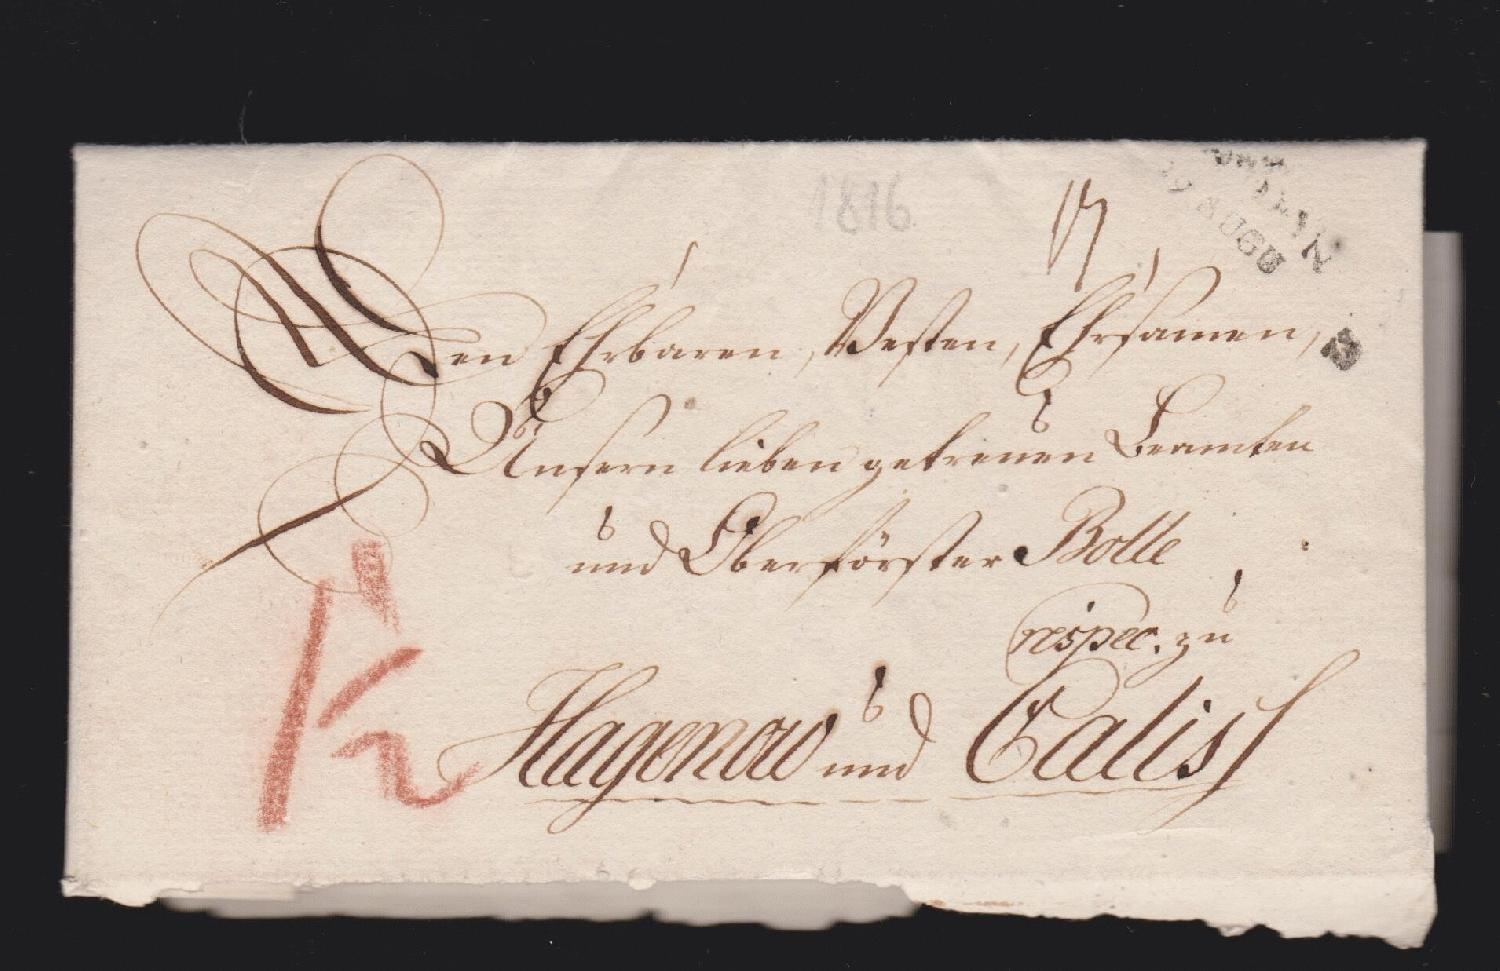 1816
Den Ehrbaren, Vesten, Ehrsamen,
Unsern lieben getreuen Beamten
und Oberförster Bolle
respec. zu
Hagenow und Caliss
1/2